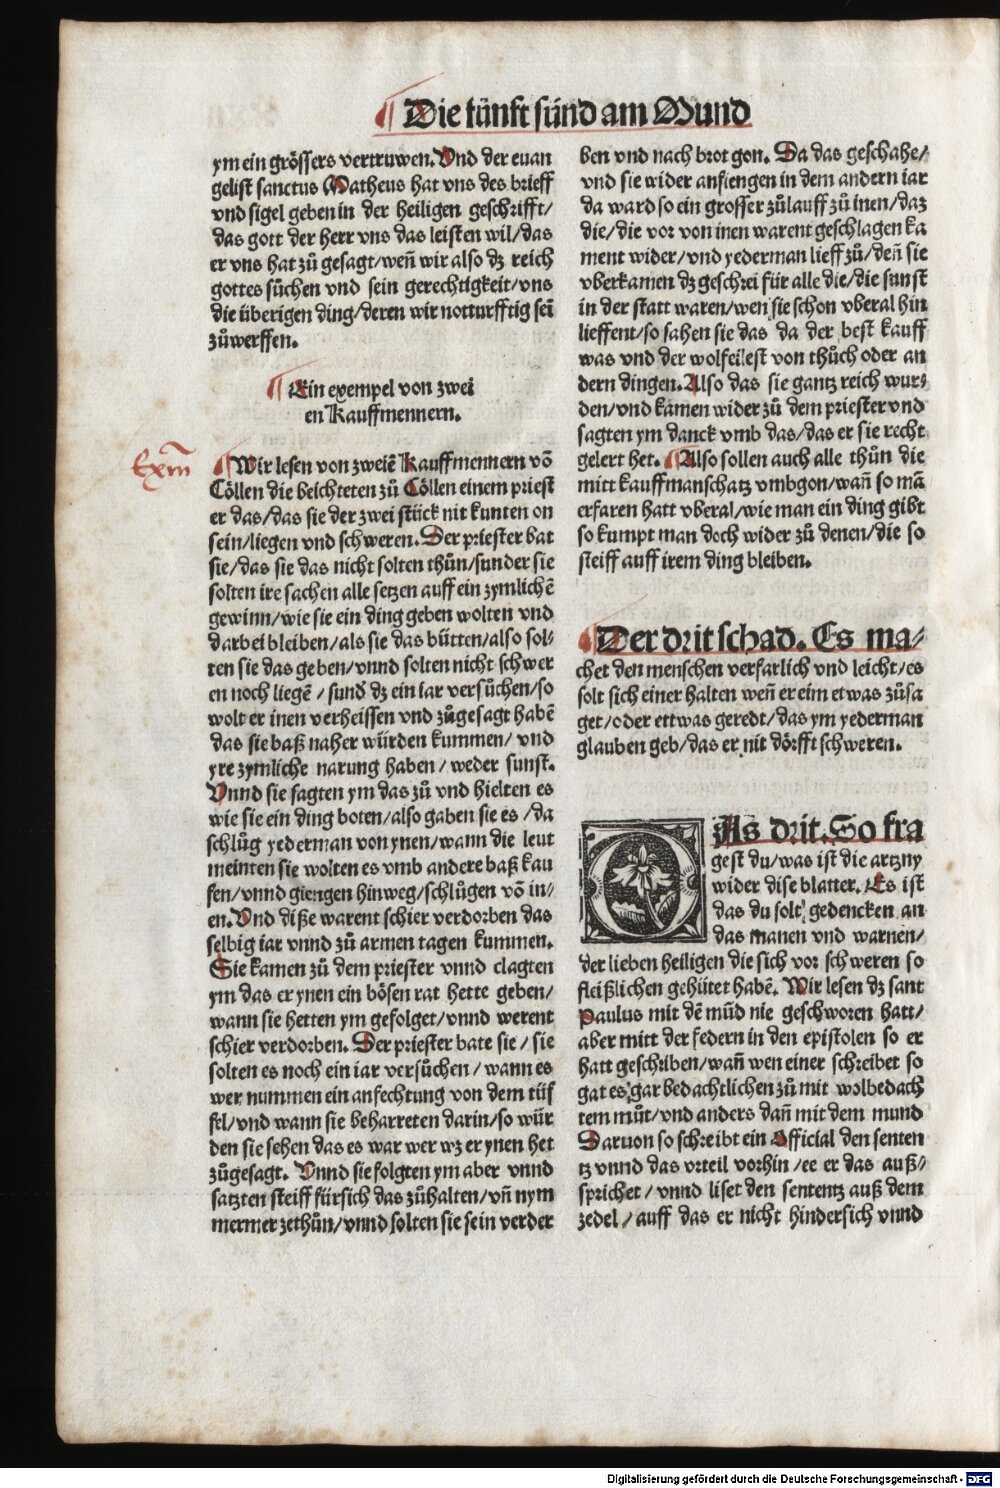 ¶ Die fünfft sünd am Mund
ym ein grössers vertruwen. Vnd der euan
gelist sanctus Matheus hat vns des brieff
vnd sigel geben in der heiligen geschrifft/
das gott der herr vns das leisten wil/das
er vns hat zů gesagt/weñ wir also dz reich
gottes sůchen vnd sein gerechtigkeit/vns
die überigen ding/deren wir notturfftig sei
zůwerffen.
¶ Ein exempel von zwei
en Kauffmennern.
Exm
¶ Wir lesen von zweiē Kauffmennern võ
Cöllen die beichteten zů Cöllen einem priest
er das/das sie der zwei stück nit kunten on
sein/liegen vnd schweren. Der priester bat
sie/das sie das nicht solten thůn/sunder sie
solten ire sachen alle setzen auff ein zymlichē
gewinn/wie sie ein ding geben wolten vnd
darbei bleiben/als sie das bütten/also sol-
ten sie das geben/vnnd solten nicht schwer
en noch liegē/sund dz ein iar versůchen/so
wolt er inen verheissen vnd zůgesagt habē
das sie baß naher würden kummen/ vnd
yre zymliche narung haben/ weder sunst.
Vnnd sie sagten ym das zů vnd hielten es
wie sie ein ding boten/also gaben sie es /da
schlůg yederman von ynen/wann die leut
meinten sie wolten es vmb andere baß kau
fen/vnnd giengen hinweg/schlůgen võ in/
en. Vnd diße warent schier verdorben das
selbig iar vnnd zů armen tagen kummen.
Sie kamen zů dem priester vnnd clagten
ym das er ynen ein bösen rat hette geben/
wann sie hetten ym gefolget/vnnd werent
schier verdorben. Der priester bate sie/ sie
solten es noch ein iar versůchen/ wann es
wer nummen ein anfechtung von dem tüf
fel/vnd wann sie beharreten darin/so wür
den sie sehen das es war wer wz er ynen het
zůgesagt. Vnnd sie folgten ym aber vnnd
satzten steiff fürsich das zůhalten/vñ nym
mermer zethůn/vnnd solten sie sein verder
ben vnd nach brot gon. Da das geschahe/
vnd sie wider anfiengen in dem andern iar
da ward so ein grosser zůlauff zů inen/daz
die/die vor von inen warent geschlagen ka
ment wider/vnd yederman lieff zů/deñ sie
vberkamen dz geschrei für alle die/die sunst
in der statt waren/wen sie schon vberal hin
lieffent/so sahen sie das da der best kauff
was vnd der wolfeilest von thůch oder an
dern dingen. Also das sie gantz reich wur-
den/vnd kamen wider zů dem priester vnd
sagten ym danck vmb das/das er sie recht
gelert het. ¶ Also sollen auch alle thůn die
mitt kauffmanschatz vmbgon/wañ so mā
erfaren hatt vberal/wie man ein ding gibt
so kumpt man doch wider zů denen/die so
steiff auff irem ding bleiben.
¶ Der drit schad. Es ma-
chet den menschen verfarlich vnd leicht/es
solt sich einer halten weñ er eim etwas zůsa
get/oder ettwas geredt/das ym yederman
glauben geb/das er nit dörfft schweren.
DAs drit. So fra
gest du/was ist die artzny
wider dise blatter. Es ist
das du solt gedencken an
das manen vnd warnen/
der lieben heiligen die sich vor schweren so
fleißlichen gehütet habē. Wir lesen dz sant
Paulus mit dē mũd nie geschworen hatt/
aber mitt der federn in den epistolen so er
hatt geschriben/wañ wen einer schreibet so
gat es gar bedachtlichen zů mit wolbedach
tem můt/vnd anders dañ mit dem mund
Daruon so schreibt ein Official den senten
tz vnnd das vrteil vorhin /ee er das auß-/
sprichet / vnnd liset den sententz auß dem
zedel / auff das er nicht hindersich vnnd
Digitalisierung gefördert durch die Deutsche Forschungsgemeinschaft - DFG